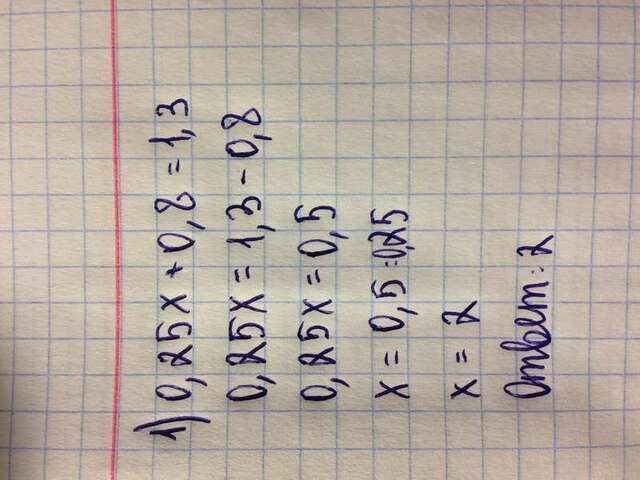 1) 0,25x + 0,8 = 1,3
0,25x = 1,3 - 0,8
0,25x = 0,5
x = 0,5 : 0,25
x = 2
Ответ: 2